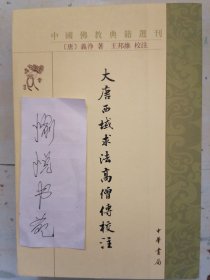 中國佛教典籍選刊
〔唐〕義淨 著 王邦維 校注
大唐西域求法高僧傳校注
书苑
中華書局